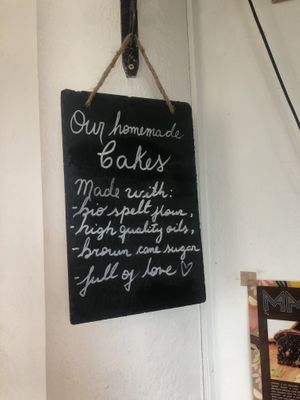 Our homemade
Cakes
Made with:
-bio spelt flour,
-high quality oils,
-brown cane sugar
-full of love ♡